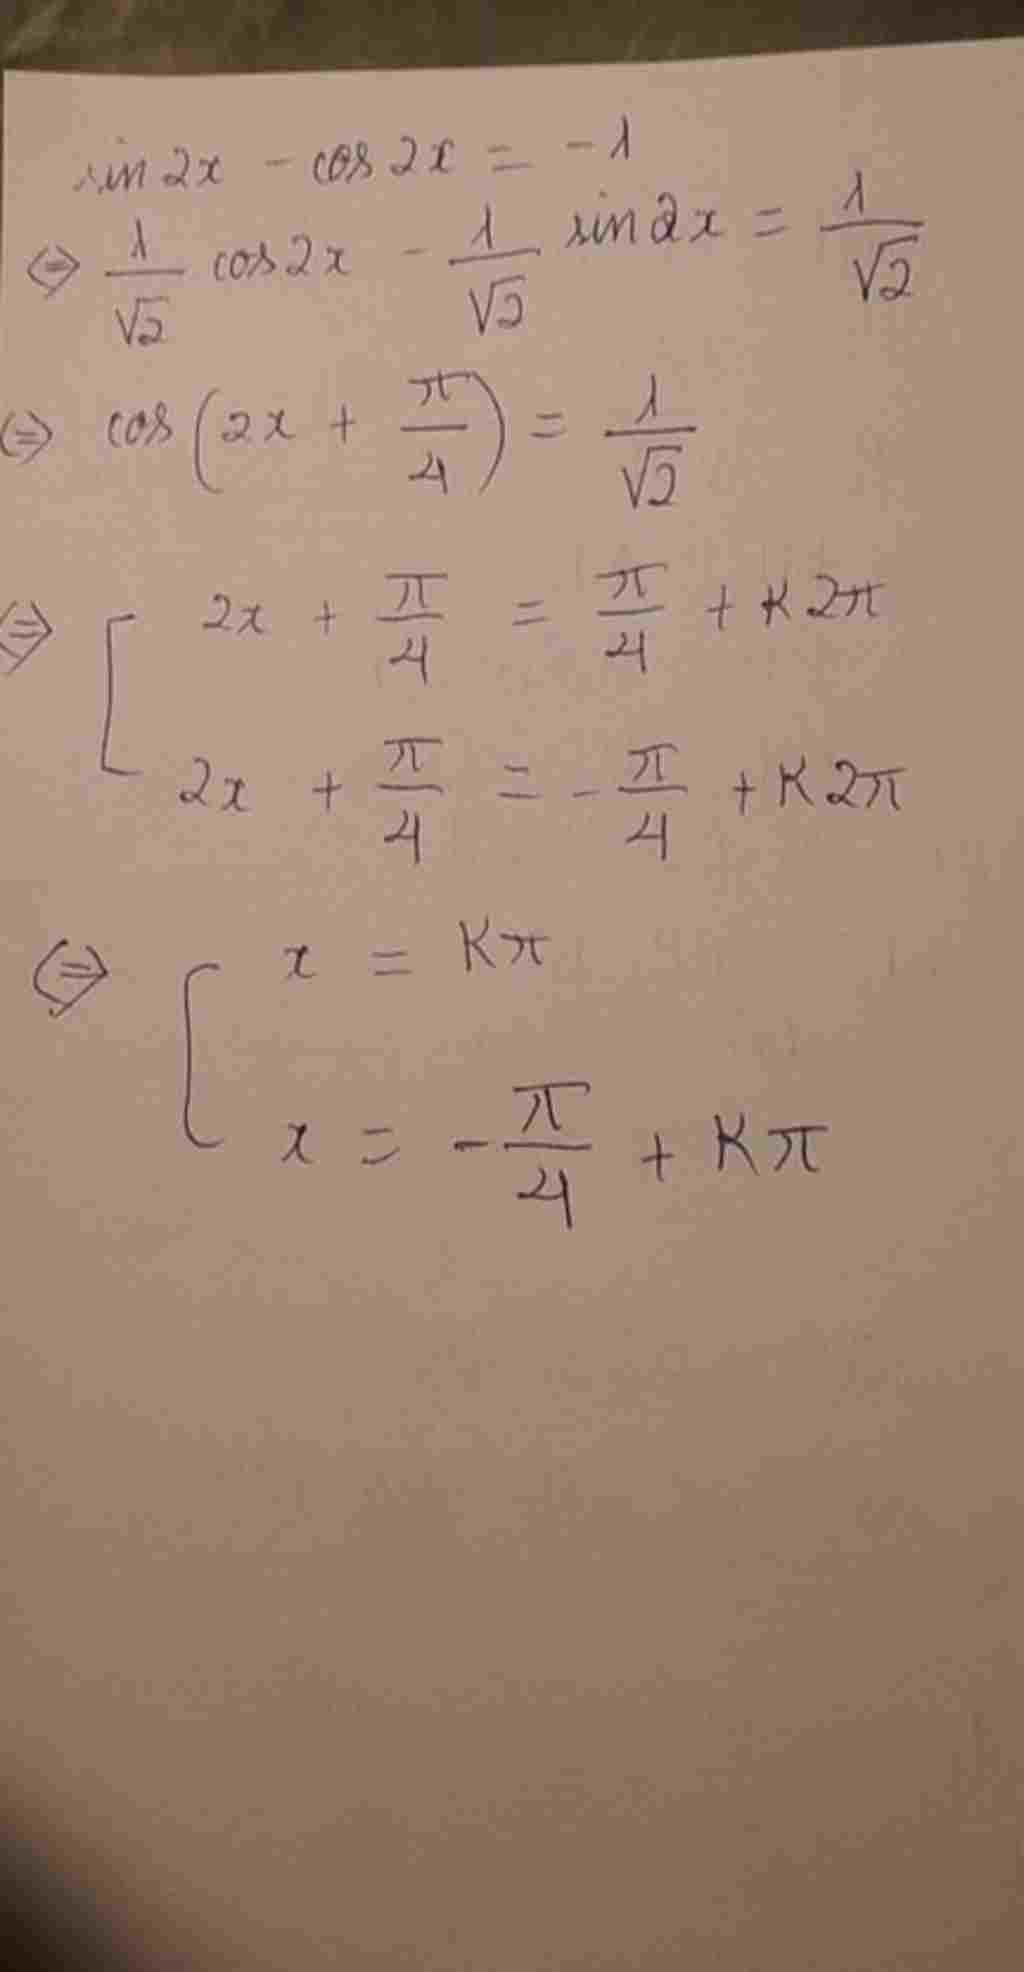 sin2x - cos2x = -1
⇔ 1/√2 cos2x - 1/√2 sin2x = 1/√2
⇔ cos(2x + π/4) = 1/√2
⇔ [ 2x + π/4 = π/4 + K2π
2x + π/4 = -π/4 + K2π
⇔ [ x = Kπ
x = -π/4 + Kπ